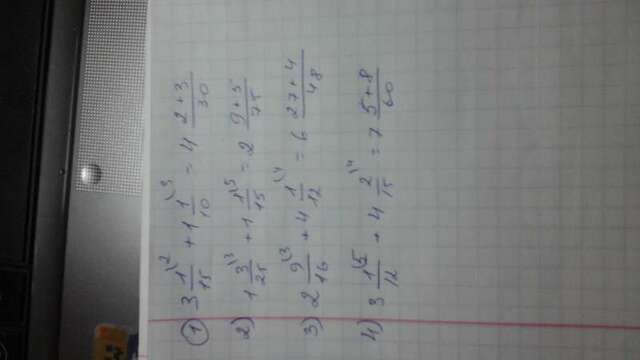 1 3 1/15 (2 + 1 1/10 (3 = 4 (2+3)/30
2) 1 3/25 (3 + 1 1/15 (5 = 2 (9+5)/75
3) 2 9/16 (3 + 4 1/12 (4 = 6 (27+4)/48
4) 3 1/12 (5 + 4 2/15 (4 = 7 (5+8)/60